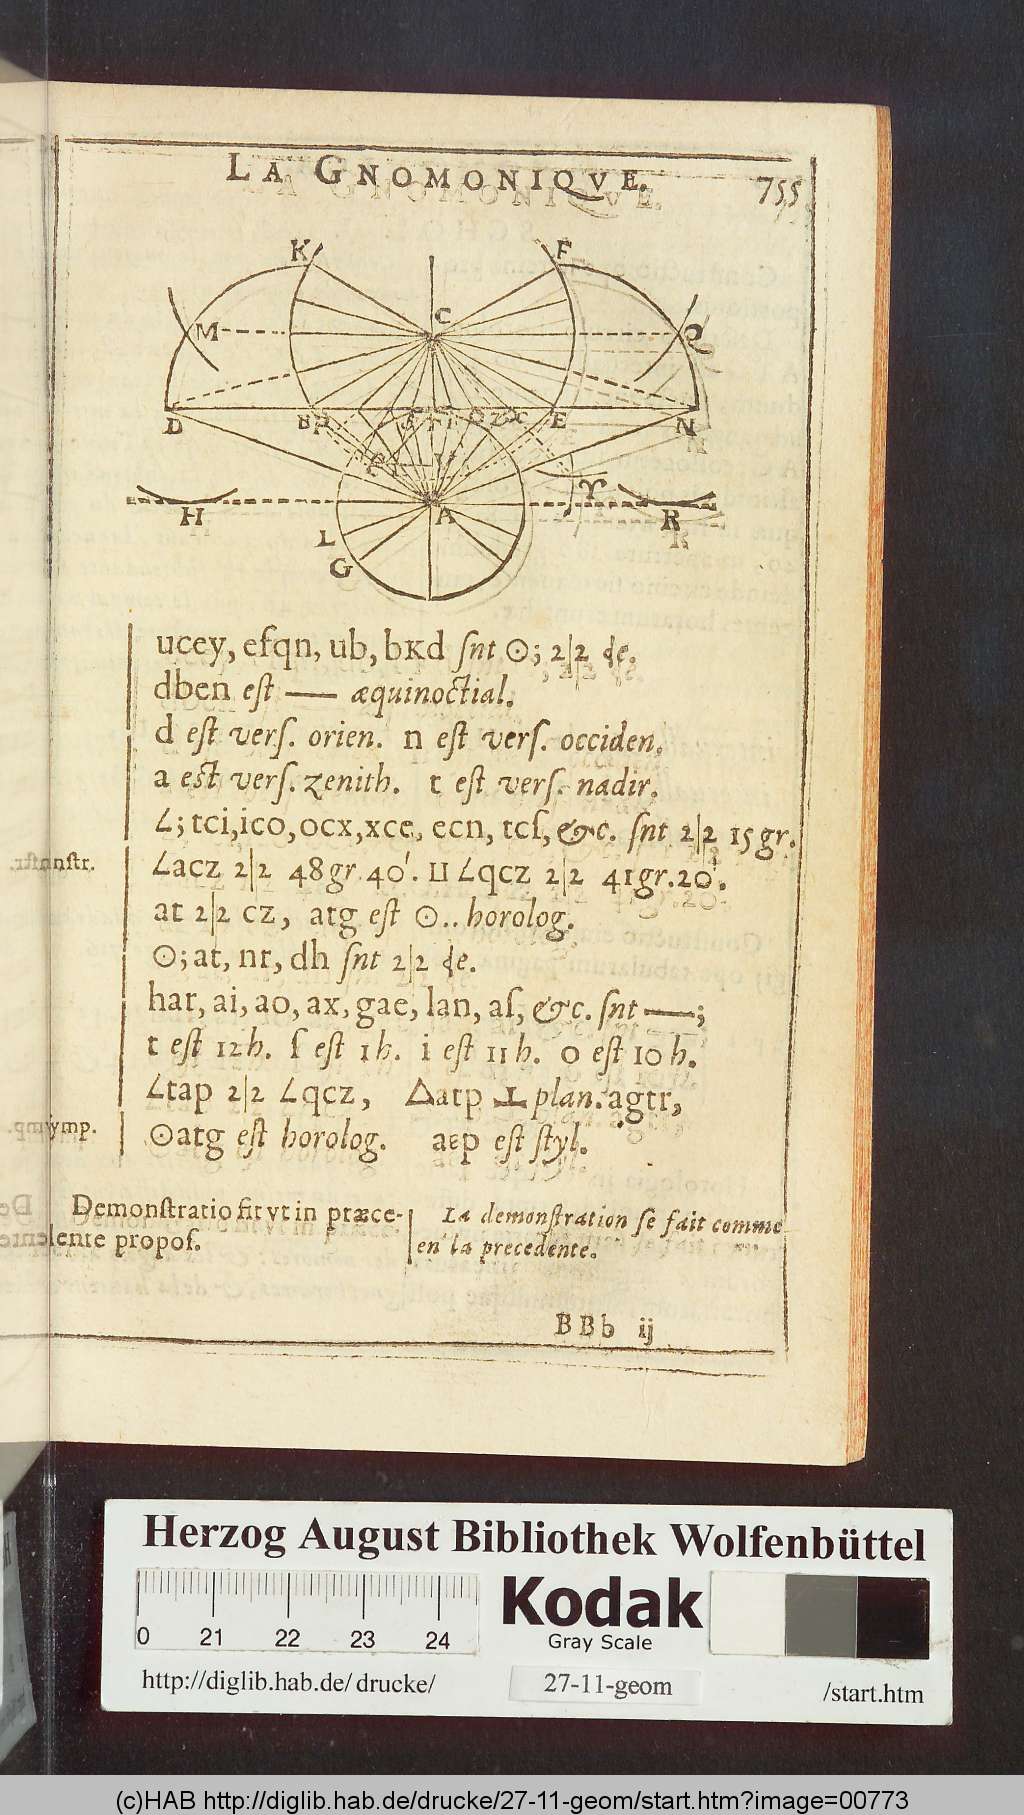 LA GNOMONIQVE.
755
K F
C
M Q
D B P S T I O Z X E N
V
H A ♈ R
L
G
ucey, efqn, ub, bKd ſnt ☉; 2|2 de.
dben eſt — æquinoctial.
d eſt verſ. orien. n eſt verſ. occiden.
a est verſ. zenith. t eſt verſ. nadir.
∠; tci, ico, ocx, xce, ecn, tcſ, &c. ſnt 2|2 15 gr.
∠acz 2|2 48 gr. 40'. II ∠qcz 2|2 41 gr. 20'.
at 2|2 cz, atg eſt ☉.. horolog.
☉; at, nr, dh ſnt 2|2 de.
har, ai, ao, ax, gae, lan, aſ, &c. ſnt —;
t eſt 12 h. ſ eſt 1 h. i eſt 11 h. o eſt 10 h.
∠tap 2|2 ∠qcz, △atp ⊥ plan. agtr,
☉atg eſt horolog. aep eſt ſtyl.
Demonſtratio fit vt in præce-
lente propoſ.
La demonſtration ſe fait comme
en la precedente.
BBb ij
Herzog August Bibliothek Wolfenbüttel
Kodak
Gray Scale
0 21 22 23 24
http://diglib.hab.de/drucke/
27-11-geom
/start.htm
(c)HAB http://diglib.hab.de/drucke/27-11-geom/start.htm?image=00773